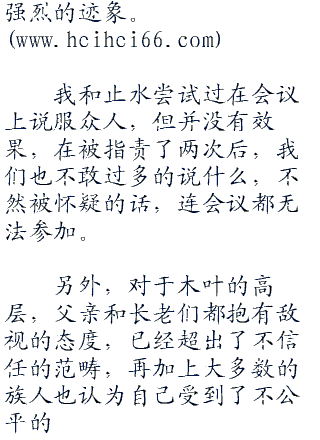 强烈的迹象。
(www.hcihci66.com)
我和止水尝试过在会议
上说服众人，但并没有效
果，在被指责了两次后，我
们也不敢过多的说什么，不
然被怀疑的话，连会议都无
法参加。
另外，对于木叶的高
层，父亲和长老们都抱有敌
视的态度，已经超出了不信
任的范畴，再加上大多数的
族人也认为自己受到了不公
平的